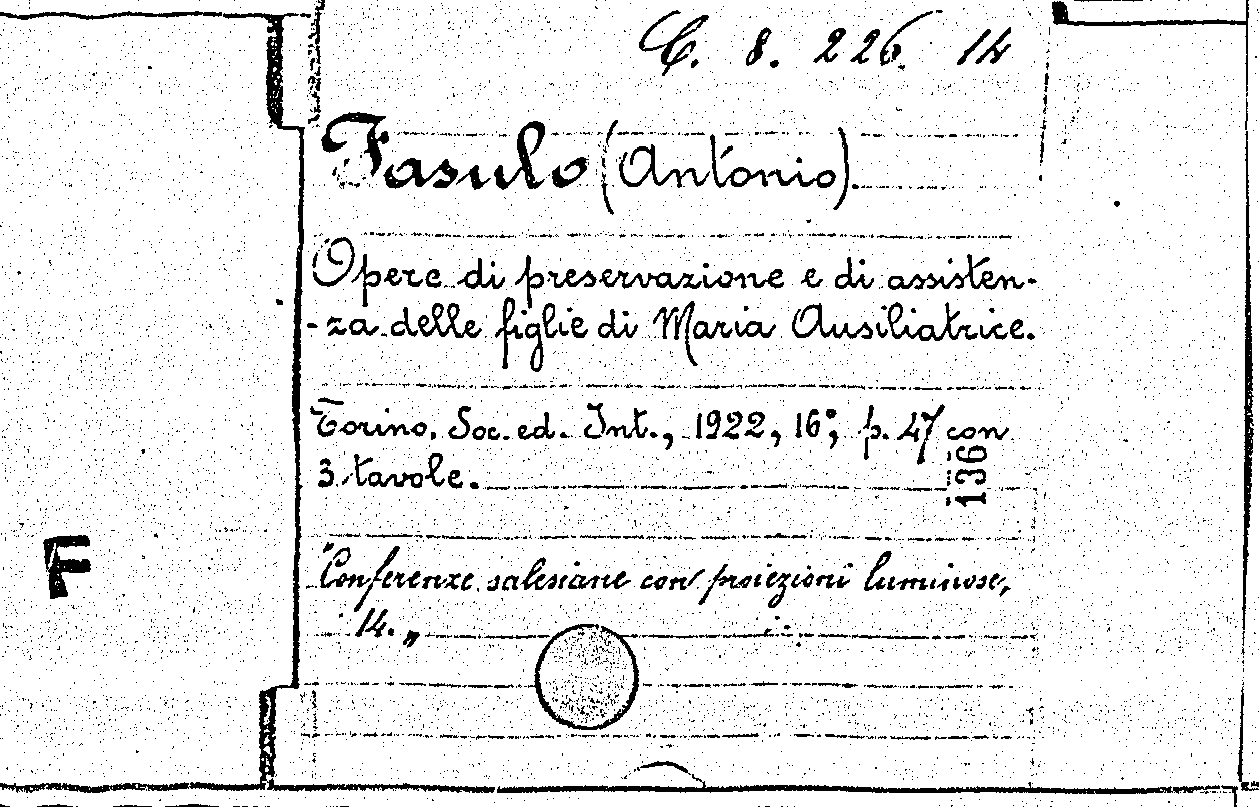 C. 8. 226. 14
Fasulo (Antonio).
Opere di preservazione e di assisten-
-za delle figlie di Maria Ausiliatrice.
Torino, Soc. ed. Int., 1922, 16°, p. 47 con
3 tavole.
136
F
"Conferenze salesiane con proiezioni luminose,
14. „